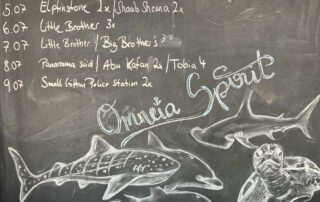 5.07 Elphinstone 2x / Shaab Shouna 2x
6.07 Little Brother 3x
7.07 Little Brother / Big Brother's 3x
8.07 Panorama süd / Abu Kafan 2x / Tobia 4
9.07 Small Giftun Police Station 2x
Omneia Spout